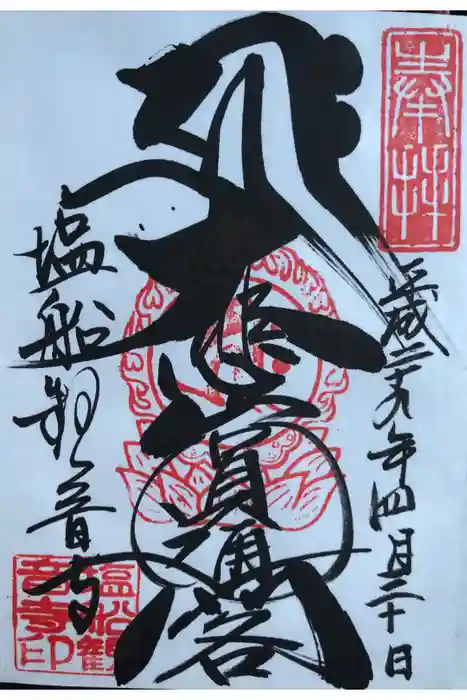 奉拝
平成二十九年四月三十日
大悲圓通閣
塩船観音寺
塩船観音寺印